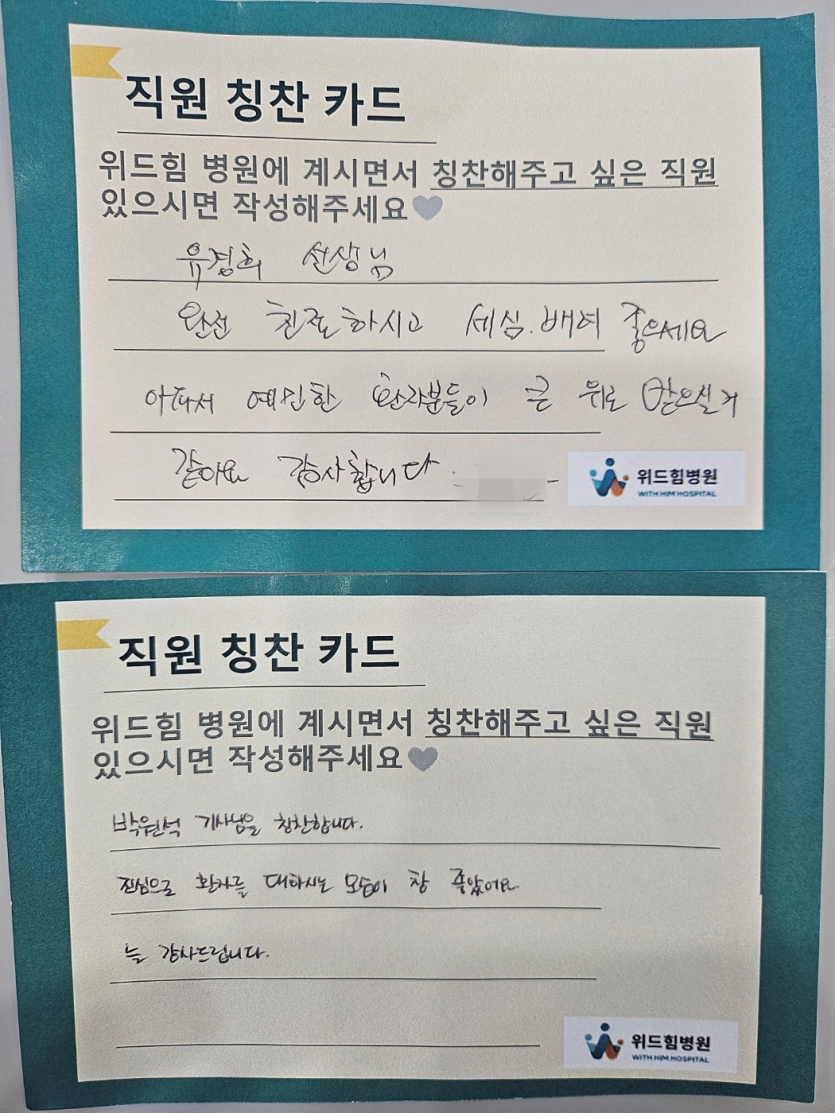 직원 칭찬 카드
위드힘 병원에 계시면서 칭찬해주고 싶은 직원
있으시면 작성해주세요
유경희 선생님
완전 친절하시고 세심.배려 좋으세요
아파서 예민한 환자분들이 큰 위로 받으실거
같아요 감사합니다.
위드힘병원
WITH HIM HOSPITAL
직원 칭찬 카드
위드힘 병원에 계시면서 칭찬해주고 싶은 직원
있으시면 작성해주세요
박원석 기사님을 칭찬합니다.
진심으로 환자를 대하시는 모습이 참 좋았어요.
늘 감사드립니다.
위드힘병원
WITH HIM HOSPITAL